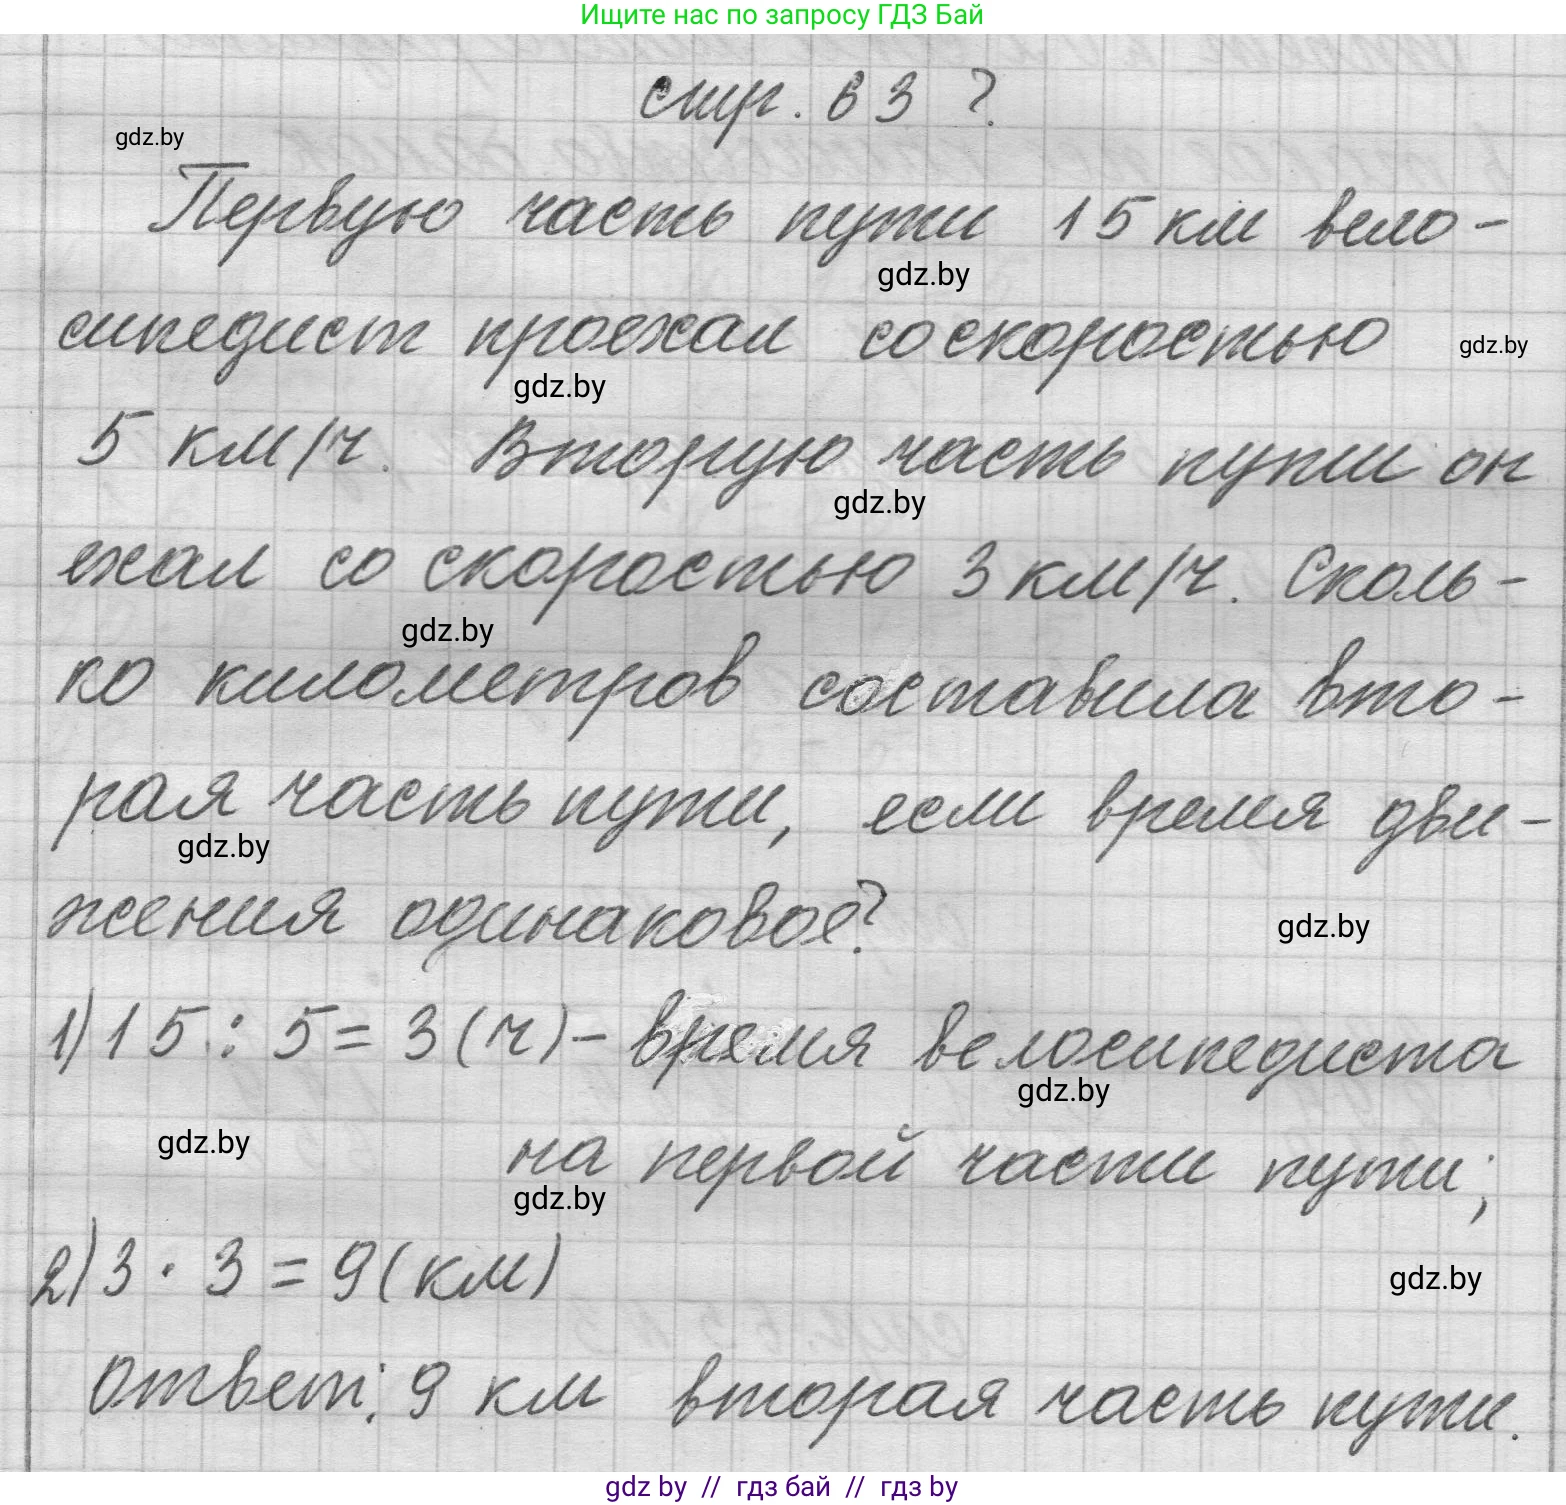 Ищите нас по запросу ГДЗ Бай
стр. 63 ?
gdz.by
Первую часть пути 15 км вело-
gdz.by
сипедист проехал со скоростью
gdz.by
gdz.by
5 км/ч. Вторую часть пути он
gdz.by
ехал со скоростью 3 км/ч. Сколь-
gdz.by
ко километров составила вто-
рая часть пути, если время дви-
gdz.by
жения одинаковое?
gdz.by
1) 15 : 5 = 3 (ч) - время велосипедиста
gdz.by
gdz.by
на первой части пути;
gdz.by
2) 3 · 3 = 9 (км)
gdz.by
Ответ: 9 км вторая часть пути.
gdz by // гдз бай // гдз by